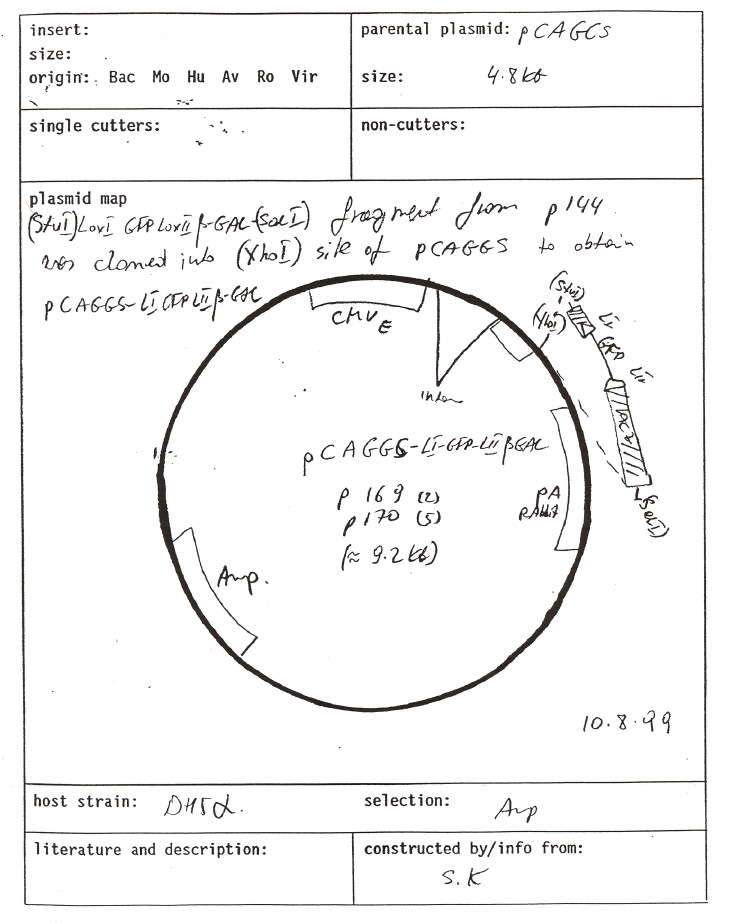 insert:
size:
origin: Bac Mo Hu Av Ro Vir
parental plasmid: pCAGGS
size: 4.8kb
single cutters:
non-cutters:
plasmid map
(StuI)LoxI GFP LoxII β-GAL(SalI) fragment from p144
was cloned into (XhoI) site of pCAGGS to obtain
pCAGGS-LI GFP LII β-GAL
CMV E
intron
(StuI)
(XhoI)
LI
GFP
LII
lacZ
(SalI)
pCAGGS-LI-GFP-LII βGAL
p169 (2)
p170 (5)
(≈ 9.2 kb)
pA
RAbbit
Amp.
10.8.99
host strain: DH5α.
selection: Amp
literature and description:
constructed by/info from:
S.K